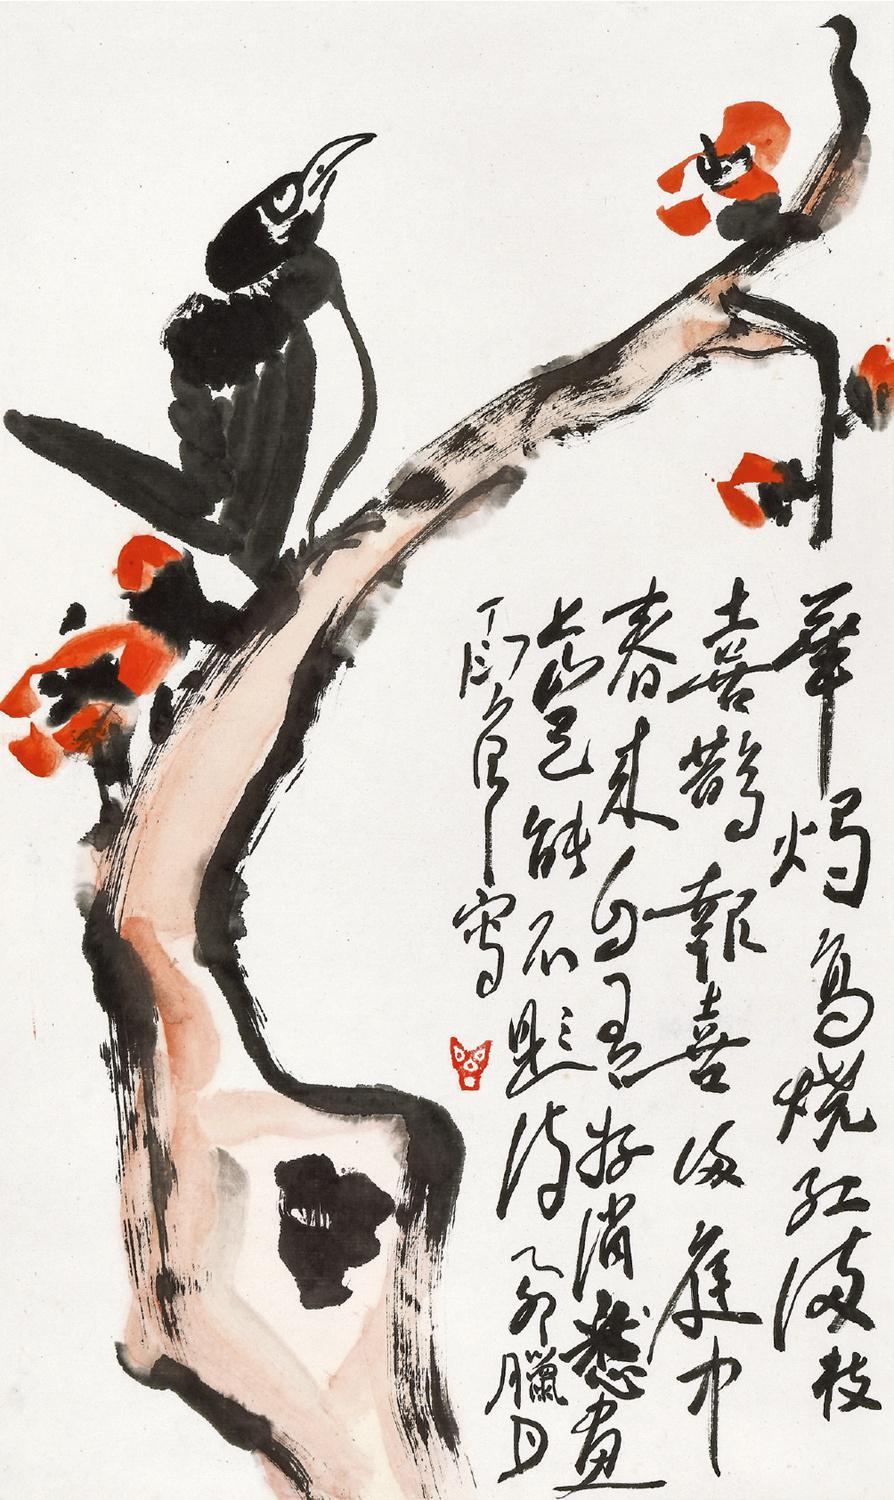 華燭高燒紅滿枝
喜鵲報喜滿庭中
春来自有好消愁畫
能不題詩 乙卯臘月
丁衍庸寫